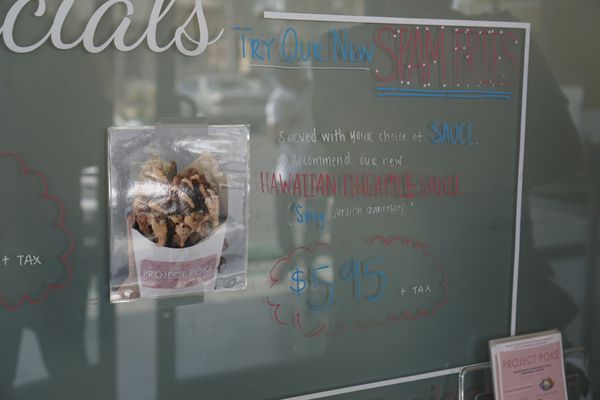 cials
TRY OUR NEW SPAM FRIES
served with your choice of SAUCE.
recommend our new
HAWAIIAN SAUCE
"Spicy version available"
$5.95 + TAX
+ TAX
PROJECT POKÉ
PROJECT POKÉ